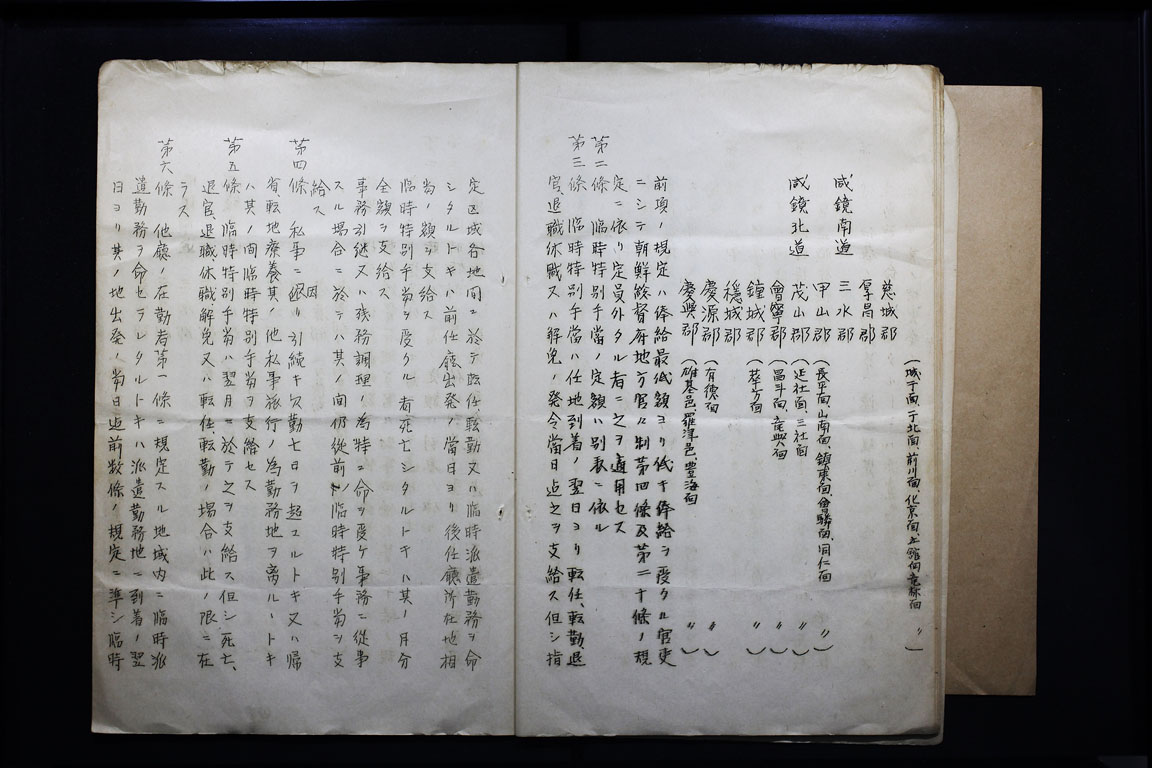 慈城郡
(城于面、于北面、前川面、化京面、
〃)
厚昌郡
咸鏡南道
三水郡
甲山郡
(長平面、山南面、鎮東面、會麟面、同仁面
〃)
咸鏡北道
茂山郡
(延社面、三社面
〃)
會寧郡
(昌斗面、龍興面
〃)
鐘城郡
(華方面
〃)
穩城郡
慶源郡
(有德面
〃)
慶興郡
(雄基邑、羅津邑、豊海面
〃)
前項ノ規定ハ俸給最低額ヨリ低キ俸給ヲ受クル官吏
ニシテ朝鮮總督府地方官々制第四條及第二十條ノ規
定ニ依リ定員外タル者ニ之ヲ適用セス
第二條 臨時特別手當ノ定額ハ別表ニ依ル
第三條 臨時特別手當ハ任地到着ノ翌日ヨリ転任、転勤、退
官、退職、休職又ハ解免ノ発令當日迄之ヲ支給ス但シ指
定区域各地間ニ於テ転任、転勤又ハ臨時派遣勤務ヲ命
シタルトキハ前任廳出発ノ當日ヨリ後任廳所在地相
当ノ額ヲ支給ス
臨時特別手当ヲ受クル者死亡シタルトキハ其ノ月分
全額ヲ支給ス
事務引継又ハ残務調理ノ為特ニ命ヲ受ケ事務ニ従事
スル場合ニ於テハ其ノ間仍従前ノ臨時特別手当ヲ支
給ス
第四條 私事ニ因リ引続キ欠勤七日ヲ超ユルトキ又ハ帰
省、転地療養其ノ他私事旅行ノ為勤務地ヲ离ルヽトキ
ハ其ノ間臨時特別手当ヲ支給セス
第五條 臨時特別手当ハ翌月ニ於テ之ヲ支給ス但シ死亡、
退官、退職、休職、解免又ハ転任転勤ノ場合ハ此ノ限ニ在
ラス
第六條 他廳ノ在勤者第一條ニ規定スル地域内ニ臨時派
遣勤務ヲ命セラレタルトキハ派遣勤務地ニ到着ノ翌
日ヨリ其ノ地出発ノ当日迄前数條ノ規定ニ準シ臨時